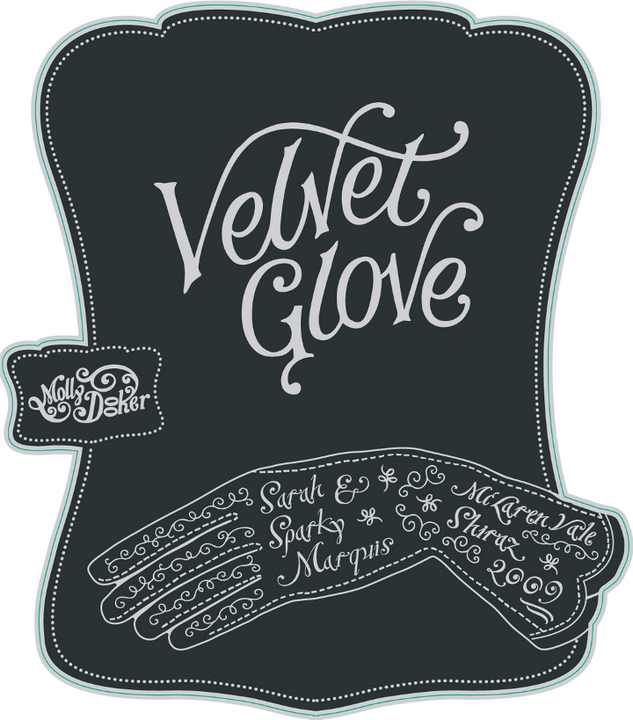 Velvet
Glove
Molly
Dooker
Sarah &
Sparky
Marquis
McLaren Vale
Shiraz
2009